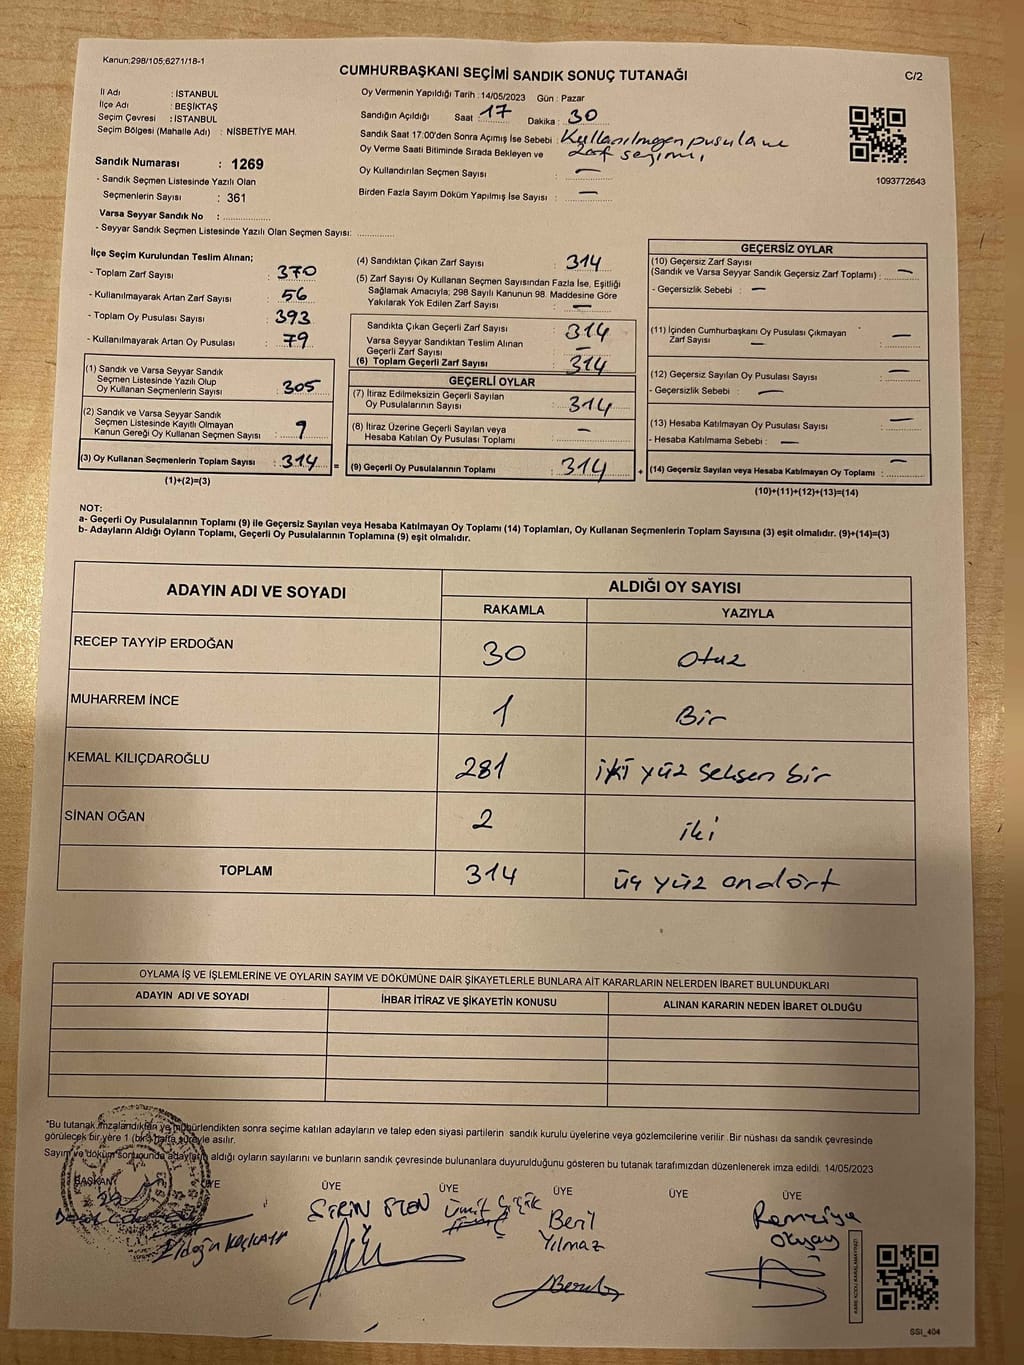 Kanun:298/105;6271/18-1
CUMHURBAŞKANI SEÇİMİ SANDIK SONUÇ TUTANAĞI
C/2
İl Adı : İSTANBUL
İlçe Adı : BEŞİKTAŞ
Seçim Çevresi : İSTANBUL
Seçim Bölgesi (Mahalle Adı) : NİSBETİYE MAH.
Sandık Numarası : 1269
- Sandık Seçmen Listesinde Yazılı Olan
Seçmenlerin Sayısı : 361
Varsa Seyyar Sandık No : ..............
- Seyyar Sandık Seçmen Listesinde Yazılı Olan Seçmen Sayısı: ............
Oy Vermenin Yapıldığı Tarih : 14/05/2023 Gün : Pazar
Sandığın Açıldığı Saat : 17 Dakika : 30
Sandık Saat 17:00'den Sonra Açılmış İse Sebebi : Kullanılmayan pusula ve
zarf sayımı
Oy Verme Saati Bitiminde Sırada Bekleyen ve
Oy Kullandırılan Seçmen Sayısı : —
Birden Fazla Sayım Döküm Yapılmış İse Sayısı : —
1093772643
İlçe Seçim Kurulundan Teslim Alınan;
- Toplam Zarf Sayısı : 370
- Kullanılmayarak Artan Zarf Sayısı : 56
- Toplam Oy Pusulası Sayısı : 393
- Kullanılmayarak Artan Oy Pusulası : 79
(1) Sandık ve Varsa Seyyar Sandık
Seçmen Listesinde Yazılı Olup
Oy Kullanan Seçmenlerin Sayısı : 305
(2) Sandık ve Varsa Seyyar Sandık
Seçmen Listesinde Kayıtlı Olmayan
Kanun Gereği Oy Kullanan Seçmen Sayısı : 9
(3) Oy Kullanan Seçmenlerin Toplam Sayısı : 314 =
(1)+(2)=(3)
(4) Sandıktan Çıkan Zarf Sayısı : 314
(5) Zarf Sayısı Oy Kullanan Seçmen Sayısından Fazla İse, Eşitliği
Sağlamak Amacıyla; 298 Sayılı Kanunun 98. Maddesine Göre
Yakılarak Yok Edilen Zarf Sayısı : —
Sandıkta Çıkan Geçerli Zarf Sayısı : 314
Varsa Seyyar Sandıktan Teslim Alınan
Geçerli Zarf Sayısı : —
(6) Toplam Geçerli Zarf Sayısı : 314
GEÇERLİ OYLAR
(7) İtiraz Edilmeksizin Geçerli Sayılan
Oy Pusulalarının Sayısı : 314
(8) İtiraz Üzerine Geçerli Sayılan veya
Hesaba Katılan Oy Pusulası Toplamı : —
(9) Geçerli Oy Pusulalarının Toplamı : 314 +
GEÇERSİZ OYLAR
(10) Geçersiz Zarf Sayısı
(Sandık ve Varsa Seyyar Sandık Geçersiz Zarf Toplamı) : —
- Geçersizlik Sebebi : —
(11) İçinden Cumhurbaşkanı Oy Pusulası Çıkmayan
Zarf Sayısı : —
(12) Geçersiz Sayılan Oy Pusulası Sayısı : —
- Geçersizlik Sebebi : —
(13) Hesaba Katılmayan Oy Pusulası Sayısı : —
- Hesaba Katılmama Sebebi : —
(14) Geçersiz Sayılan veya Hesaba Katılmayan Oy Toplamı : —
(10)+(11)+(12)+(13)=(14)
NOT:
a- Geçerli Oy Pusulalarının Toplamı (9) ile Geçersiz Sayılan veya Hesaba Katılmayan Oy Toplamı (14) Toplamları, Oy Kullanan Seçmenlerin Toplam Sayısına (3) eşit olmalıdır. (9)+(14)=(3)
b- Adayların Aldığı Oyların Toplamı, Geçerli Oy Pusulalarının Toplamına (9) eşit olmalıdır.
ADAYIN ADI VE SOYADI ALDIĞI OY SAYISI
RAKAMLA YAZIYLA
RECEP TAYYİP ERDOĞAN 30 Otuz
MUHARREM İNCE 1 Bir
KEMAL KILIÇDAROĞLU 281 iki yüz seksen bir
SİNAN OĞAN 2 iki
TOPLAM 314 üç yüz ondört
OYLAMA İŞ VE İŞLEMLERİNE VE OYLARIN SAYIM VE DÖKÜMÜNE DAİR ŞİKAYETLERLE BUNLARA AİT KARARLARIN NELERDEN İBARET BULUNDUKLARI
ADAYIN ADI VE SOYADI İHBAR İTİRAZ VE ŞİKAYETİN KONUSU ALINAN KARARIN NEDEN İBARET OLDUĞU
*Bu tutanak imzalandıktan ve mühürlendikten sonra seçime katılan adayların ve talep eden siyasi partilerin sandık kurulu üyelerine veya gözlemcilerine verilir. Bir nüshası da sandık çevresinde
görülecek bir yere 1 (bir) hafta süreyle asılır.
Sayım ve döküm sonucunda adayların aldığı oyların sayılarını ve bunların sandık çevresinde bulunanlara duyurulduğunu gösteren bu tutanak tarafımızdan düzenlenerek imza edildi. 14/05/2023
BAŞKAN ÜYE ÜYE ÜYE ÜYE ÜYE ÜYE
Ümit Çiçik
Beril
Yılmaz
Remziye
Okyay
SSI_404